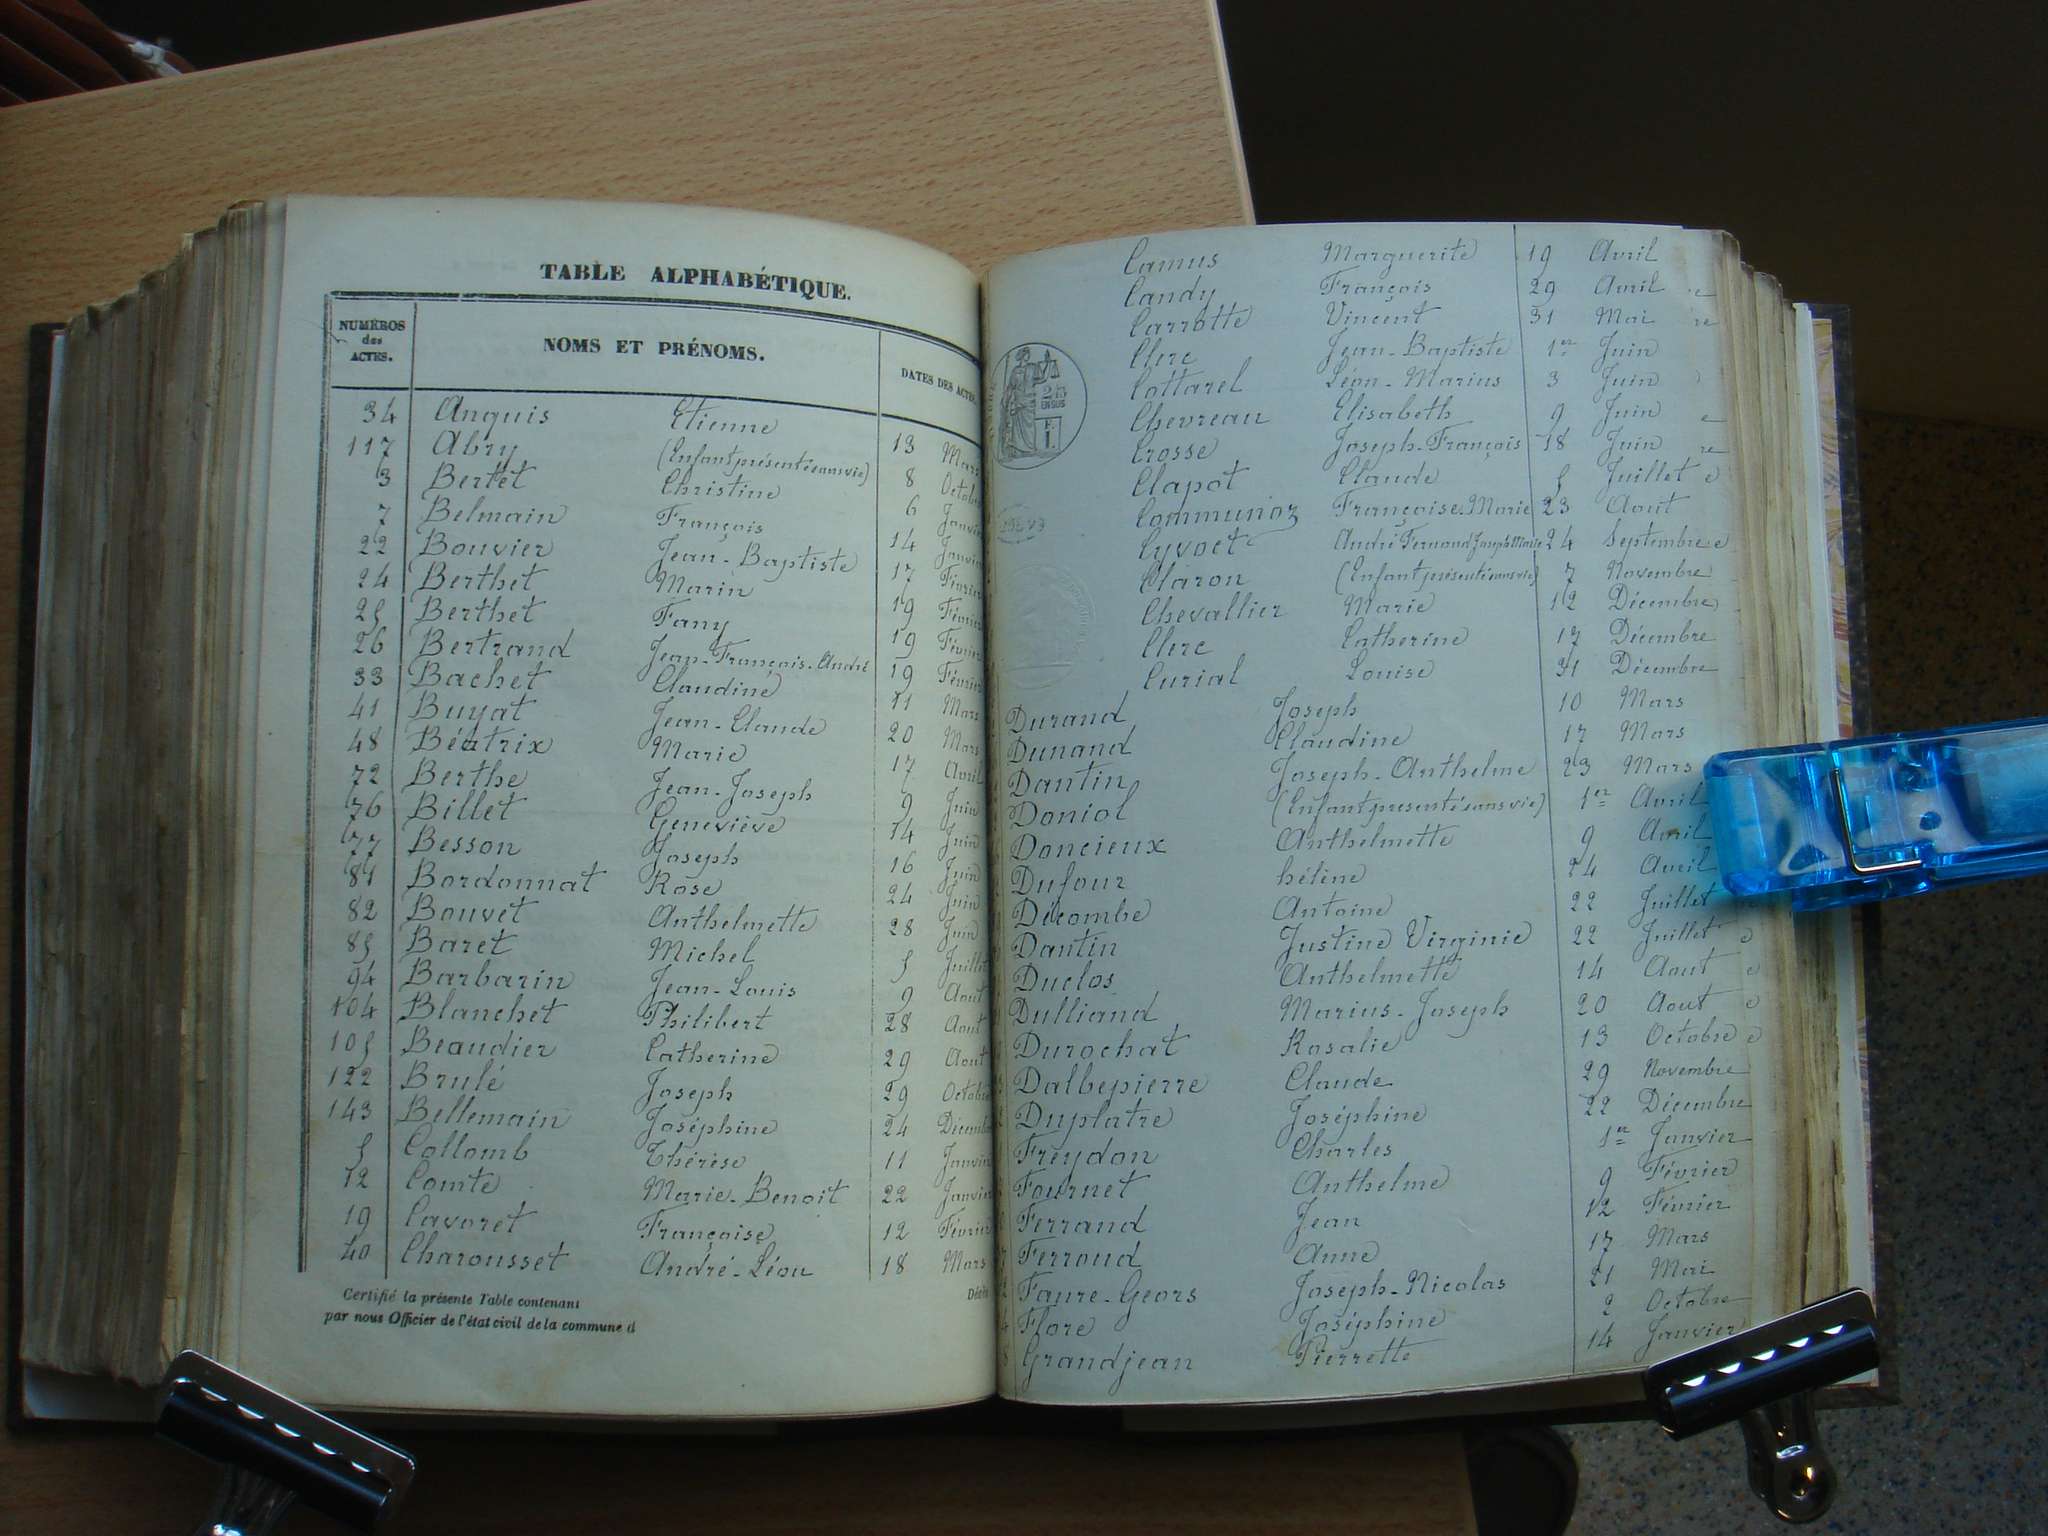 TABLE ALPHABÉTIQUE.
NUMÉROS des ACTES.
NOMS ET PRÉNOMS.
DATES DES ACTES.
34 Anquis Etienne 13 Mars
117 Abry (Enfant présenté sans vie) 8 Octobre
3 Bertet Christine 6 Janvier
7 Belmain François 14 Janvier
22 Bouvier Jean-Baptiste 17 Février
24 Berthet Marin 19 Février
25 Berthet Fany 19 Février
26 Bertrand Jean-François-André 19 Février
33 Bachet Claudine 11 Mars
41 Buyat Jean-Claude 20 Mars
48 Béatrix Marie 17 Avril
72 Berthe Jean-Joseph 9 Juin
76 Billet Geneviève 14 Juin
77 Besson Joseph 16 Juin
81 Bordonnat Rose 24 Juin
82 Bouvet Anthelmette 28 Juin
85 Baret Michel 5 Juillet
94 Barbarin Jean-Louis 9 Aout
104 Blanchet Philibert 28 Aout
105 Beaudier Catherine 29 Aout
122 Brulé Joseph 29 Octobre
143 Bellemain Joséphine 24 Décembre
5 Collomb Thérèse 11 Janvier
12 Comte Marie-Benoit 22 Janvier
19 Cavoret Françoise 12 Février
40 Charousset André-Léon 18 Mars
Certifié la présente Table contenant
par nous Officier de l'état civil de la commune d
Camus Marguerite 19 Avril
Candy François 29 Avril
Carrotte Vincent 31 Mai
Clerc Jean-Baptiste 1er Juin
Cottarel Léon-Marius 3 Juin
Chevreau Elisabeth 9 Juin
Crosse Joseph-François 18 Juin
Clapot Claude 5 Juillet
Communoz Françoise-Marie 23 Aout
Cyvoct André Fernand Joseph Marie 24 Septembre
Claron (Enfant présenté sans vie) 7 Novembre
Chevallier Marie 12 Décembre
Clerc Catherine 17 Décembre
Curial Louise 31 Décembre
Durand Joseph 10 Mars
Dunand Claudine 17 Mars
Dantin Joseph-Anthelme 23 Mars
Doniol (Enfant présenté sans vie) 1er Avril
Doncieux Anthelmette 9 Avril
Dufour hélène 24 Avril
Décombe Antoine 22 Juillet
Dantin Justine Virginie 22 Juillet
Duclos Anthelmette 14 Aout
Dulliand Marius-Joseph 20 Aout
Durochat Rosalie 13 Octobre
Dalbepierre Claude 29 Novembre
Duplatre Joséphine 22 Décembre
Freydon Charles 1er Janvier
Fournet Anthelme 9 Février
Ferrand Jean 12 Février
Ferroud Anne 17 Mars
Faure-Geors Joseph-Nicolas 21 Mai
Flore Joséphine 2 Octobre
Grandjean Pierrette 14 Janvier